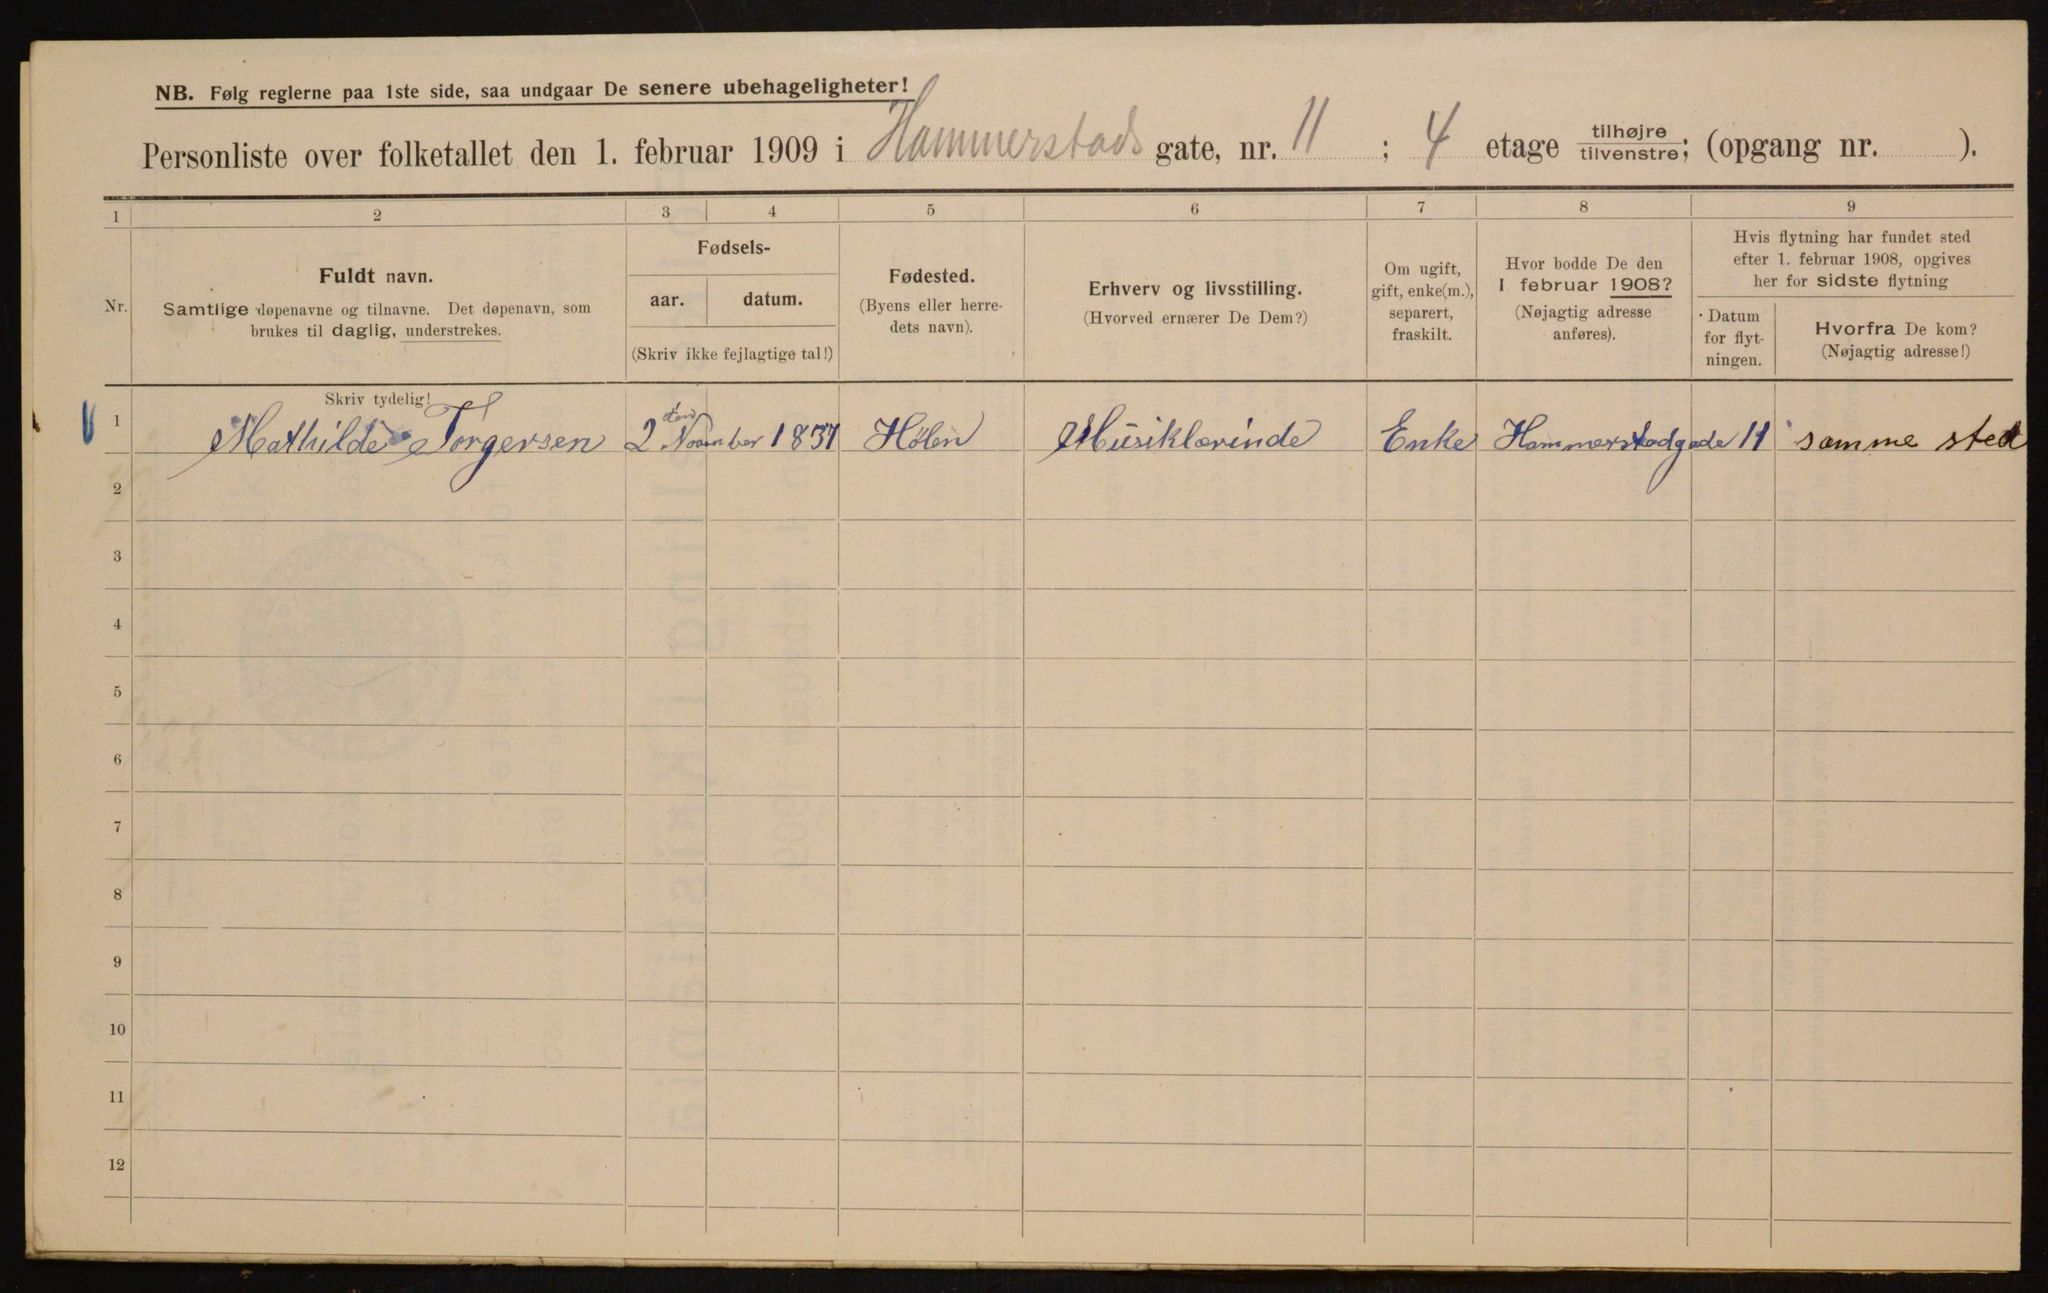 NB. Følg reglerne paa 1ste side, saa undgaar De senere ubehageligheter!
Personliste over folketallet den 1. februar 1909 i Hammerstads gate, nr. 11 ; 4 etage tilhøjre/tilvenstre; (opgang nr. ).
1 2 3 4 5 6 7 8 9
Nr.
Fuldt navn.
Samtlige døpenavne og tilnavne. Det døpenavn, som
brukes til daglig, understrekes.
Skriv tydelig!
Fødsels-
aar. datum.
(Skriv ikke fejlagtige tal!)
Fødested.
(Byens eller herre-
dets navn).
Erhverv og livsstilling.
(Hvorved ernærer De Dem?)
Om ugift,
gift, enke(m.),
separert,
fraskilt.
Hvor bodde De den
1 februar 1908?
(Nøjagtig adresse
anføres).
Hvis flytning har fundet sted
efter 1. februar 1908, opgives
her for sidste flytning
Datum
for flyt-
ningen.
Hvorfra De kom?
(Nøjagtig adresse!)
1 Mathilde Torgersen 2 den November 1837 Hølen Musiklærinde Enke Hammerstadgade 11 samme sted
2
3
4
5
6
7
8
9
10
11
12